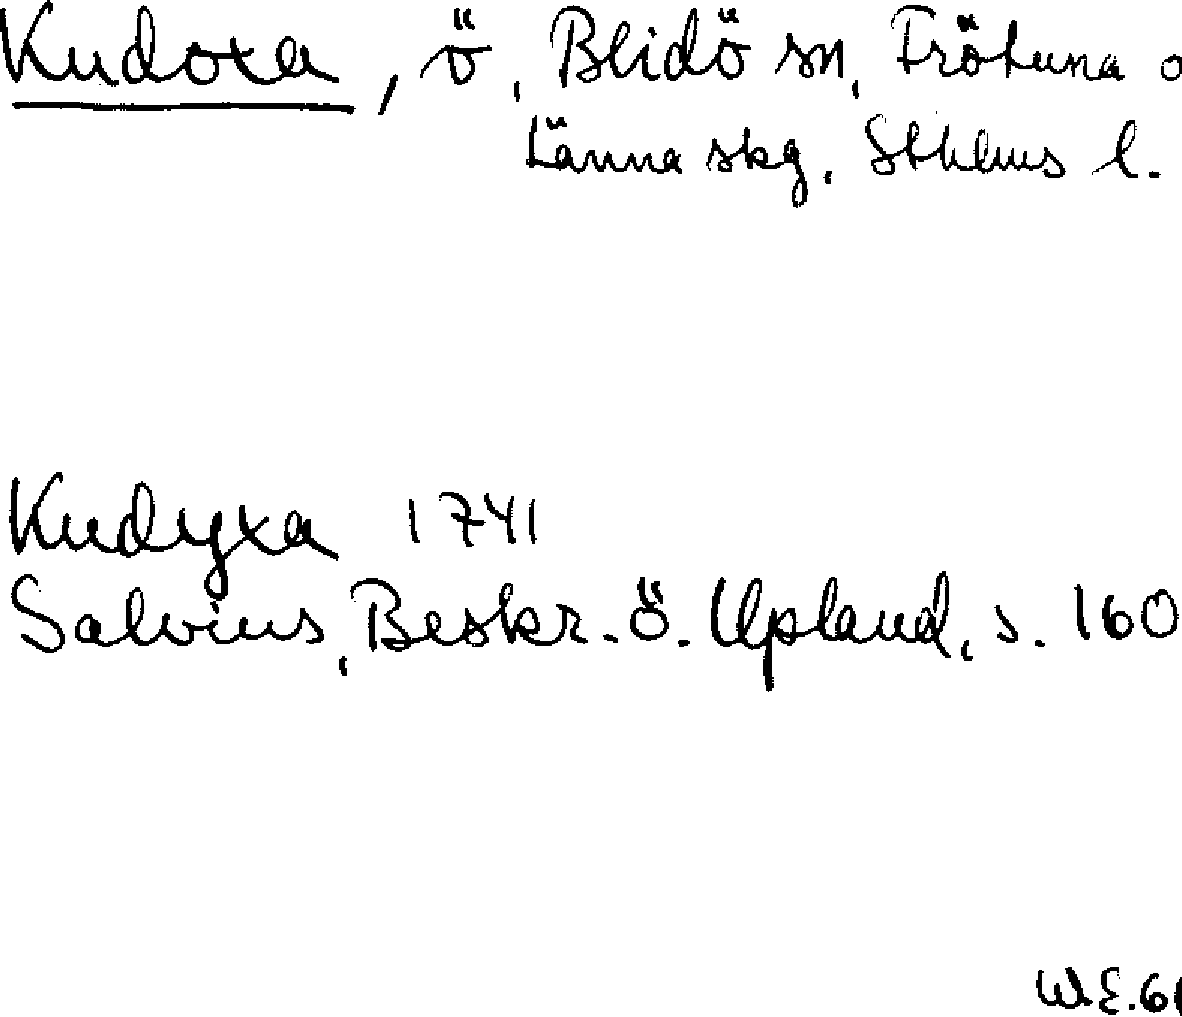 Kudoxa, ö, Blidö sn, Frötuna o
Länna skg, Sthlms l.
Kudyxa 1741
Salvius, Beskr. ö. Upland, s. 160
W.E. 61